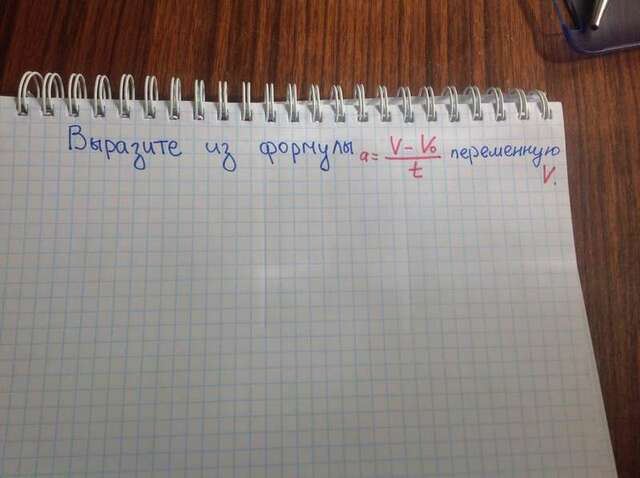 Выразите из формулы a = (V - V₀)/t переменную
V.